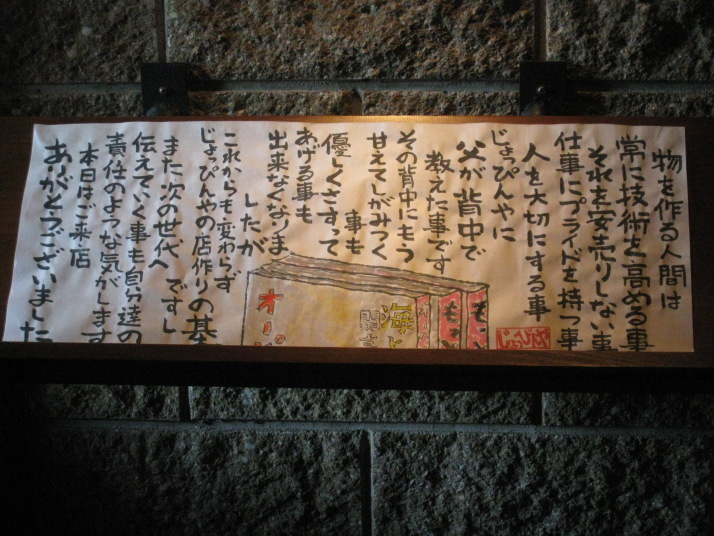 物を作る人間は
常に技術を高める事
それを安売りしない事
仕事にプライドを持つ事
人を大切にする事
じょっぴんやに
父が背中で
教えた事です
その背中にもう
甘えてしがみつく
事も
優しくさすって
あげる事も
出来なくなりま
したが
これからも変わらず
じょっぴんやの店作りの基
ですし
また次の世代へ
伝えていく事も自分達の
責任のような気がします
本日はご来店
ありがとうございました